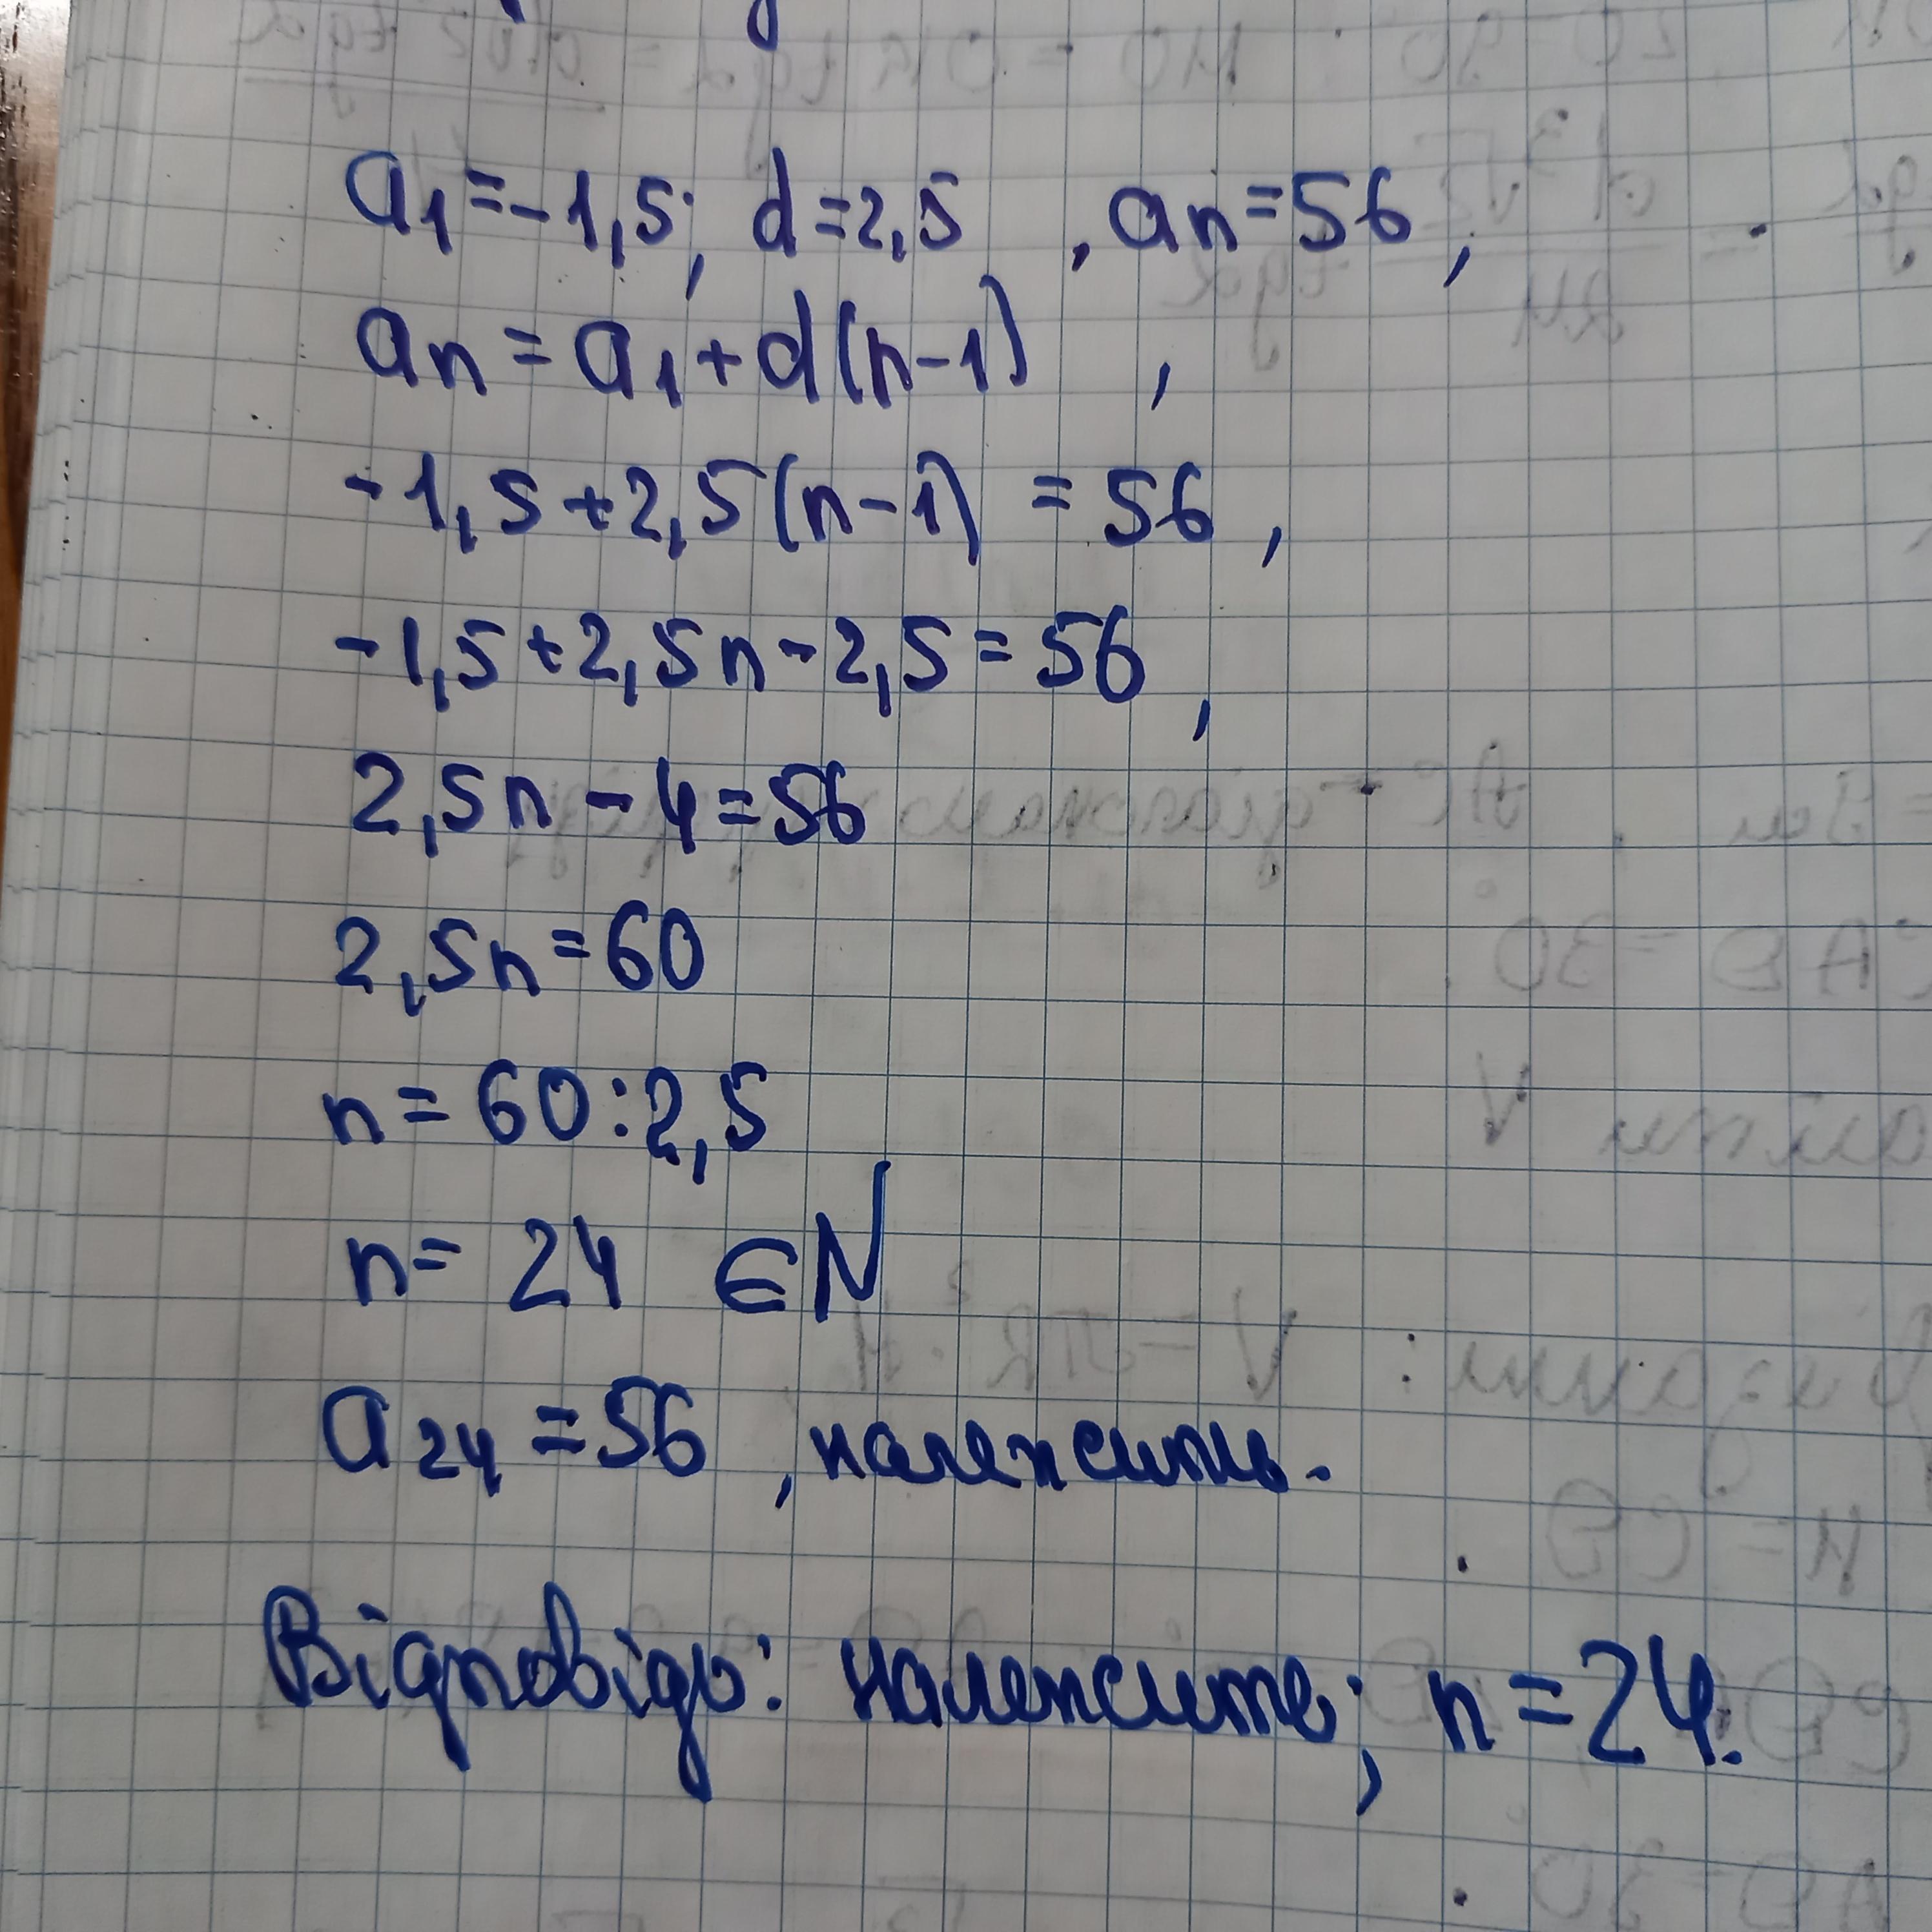 a1=-1,5; d=2,5 , an=56,
an = a1+d(n-1) ,
-1,5+2,5(n-1) = 56,
-1,5+2,5n-2,5=56,
2,5n-4=56
2,5n=60
n=60:2,5
n= 24 ∈N
a24=56, належить.
Відповідь: належить; n=24.